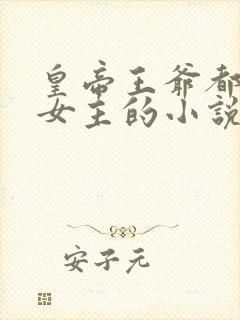 皇帝王爷都
女主的小说
安子元